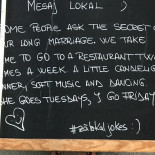 MESAJ LOKAL :)
OME PEOPLE ASK THE SECRET
UR LONG MARRIAGE. WE TAKE
ME TO GO TO A RESTAURANT TW
MES A WEEK. A LITTLE CANDLELIG
NNER, SOFT MUSIC AND DANCING.
HE GOES TUESDAYS, I GO FRIDAY
#zăbkaljokes :)